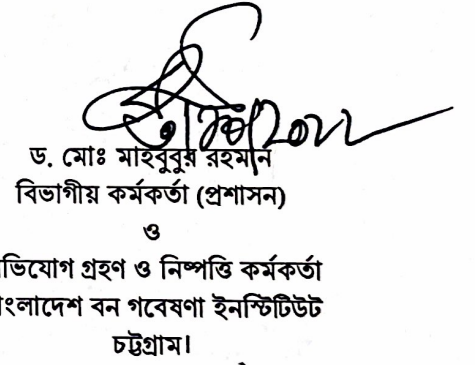 ড. মোঃ মাহবুবুর রহমান
বিভাগীয় কর্মকর্তা (প্রশাসন)
ও
ভিযোগ গ্রহণ ও নিষ্পত্তি কর্মকর্তা
াংলাদেশ বন গবেষণা ইনস্টিটিউট
চট্টগ্রাম।